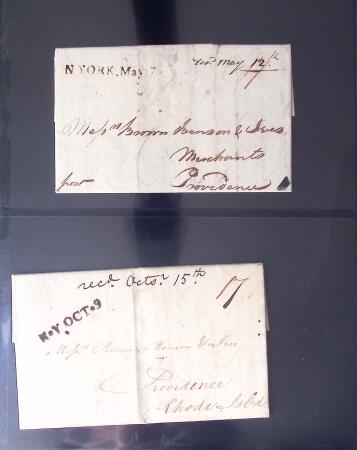 N YORK. May 7
recd. May 12th
7
Messrs Brown Benson & Ives
Merchants
post Providence
recd. Octor. 15th.
17
N.Y. OCT. 9
Messrs Brown Benson & Ives
Providence
Rhode Island